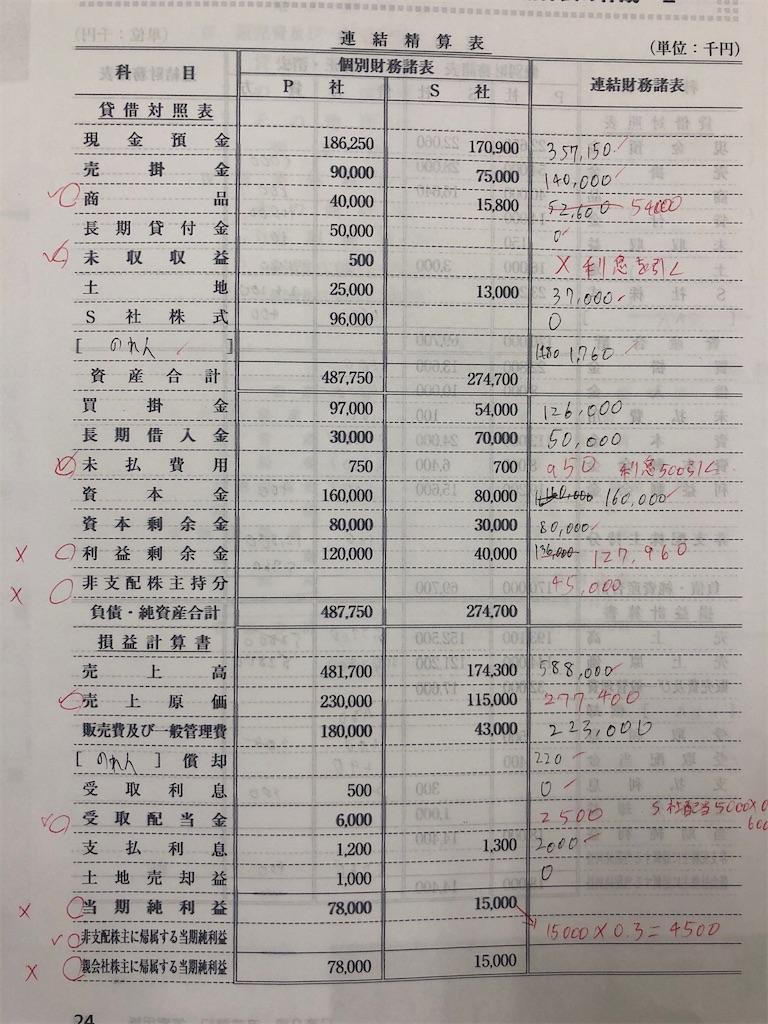 連結精算表
(単位：千円)
科目 個別財務諸表 連結財務諸表
P社 S社
貸借対照表
現金預金 186,250 170,900 357,150
売掛金 90,000 75,000 140,000
商品 40,000 15,800 52,600 54000
長期貸付金 50,000 0
未収収益 500 × 利息を引く
土地 25,000 13,000 37,000
S社株式 96,000 0
[のれん] 1,760
資産合計 487,750 274,700
買掛金 97,000 54,000 126,000
長期借入金 30,000 70,000 50,000
未払費用 750 700 950 利息500引く
資本金 160,000 80,000 160,000
資本剰余金 80,000 30,000 80,000
× 利益剰余金 120,000 40,000 136,000 127,960
× 非支配株主持分 45,000
負債・純資産合計 487,750 274,700
損益計算書
売上高 481,700 174,300 588,000
売上原価 230,000 115,000 277,400
販売費及び一般管理費 180,000 43,000 223,000
[のれん]償却 220
受取利息 500 0
受取配当金 6,000 2500 S社配当5000×0
600
支払利息 1,200 1,300 2000
土地売却益 1,000 0
× 当期純利益 78,000 15,000
非支配株主に帰属する当期純利益 15000×0.3=4500
× 親会社株主に帰属する当期純利益 78,000 15,000
24